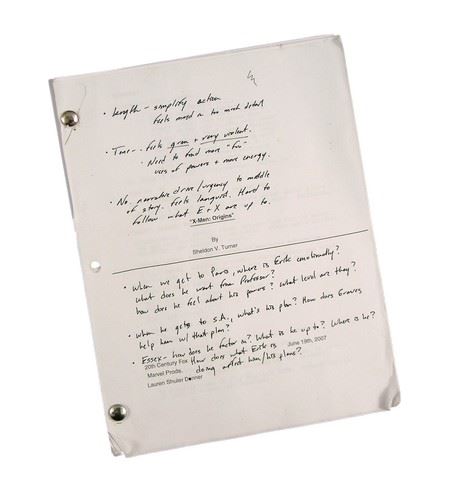 • Length – simplify action
feels mired in too much detail
• Tone – feels grim + very violent.
• Need to find more "fun"
uses of powers + more energy.
• No narrative drive/urgency to middle
of story. Feels languid. Hard to
follow what E + X are up to.
"X-Men: Origins"
By
Sheldon V. Turner
• When we get to Paris, where is Erik emotionally?
What does he want from Professor?
how does he feel about his powers? What level are they?
• when he gets to S.A., what's his plan? How does Graves
help him w/ that plan?
• Essex – how does he factor in? What is he up to? Where is he?
How does what Erik is
doing affect him/his plans?
June 19th, 2007
20th Century Fox
Marvel Prods.
Lauren Shuler Donner